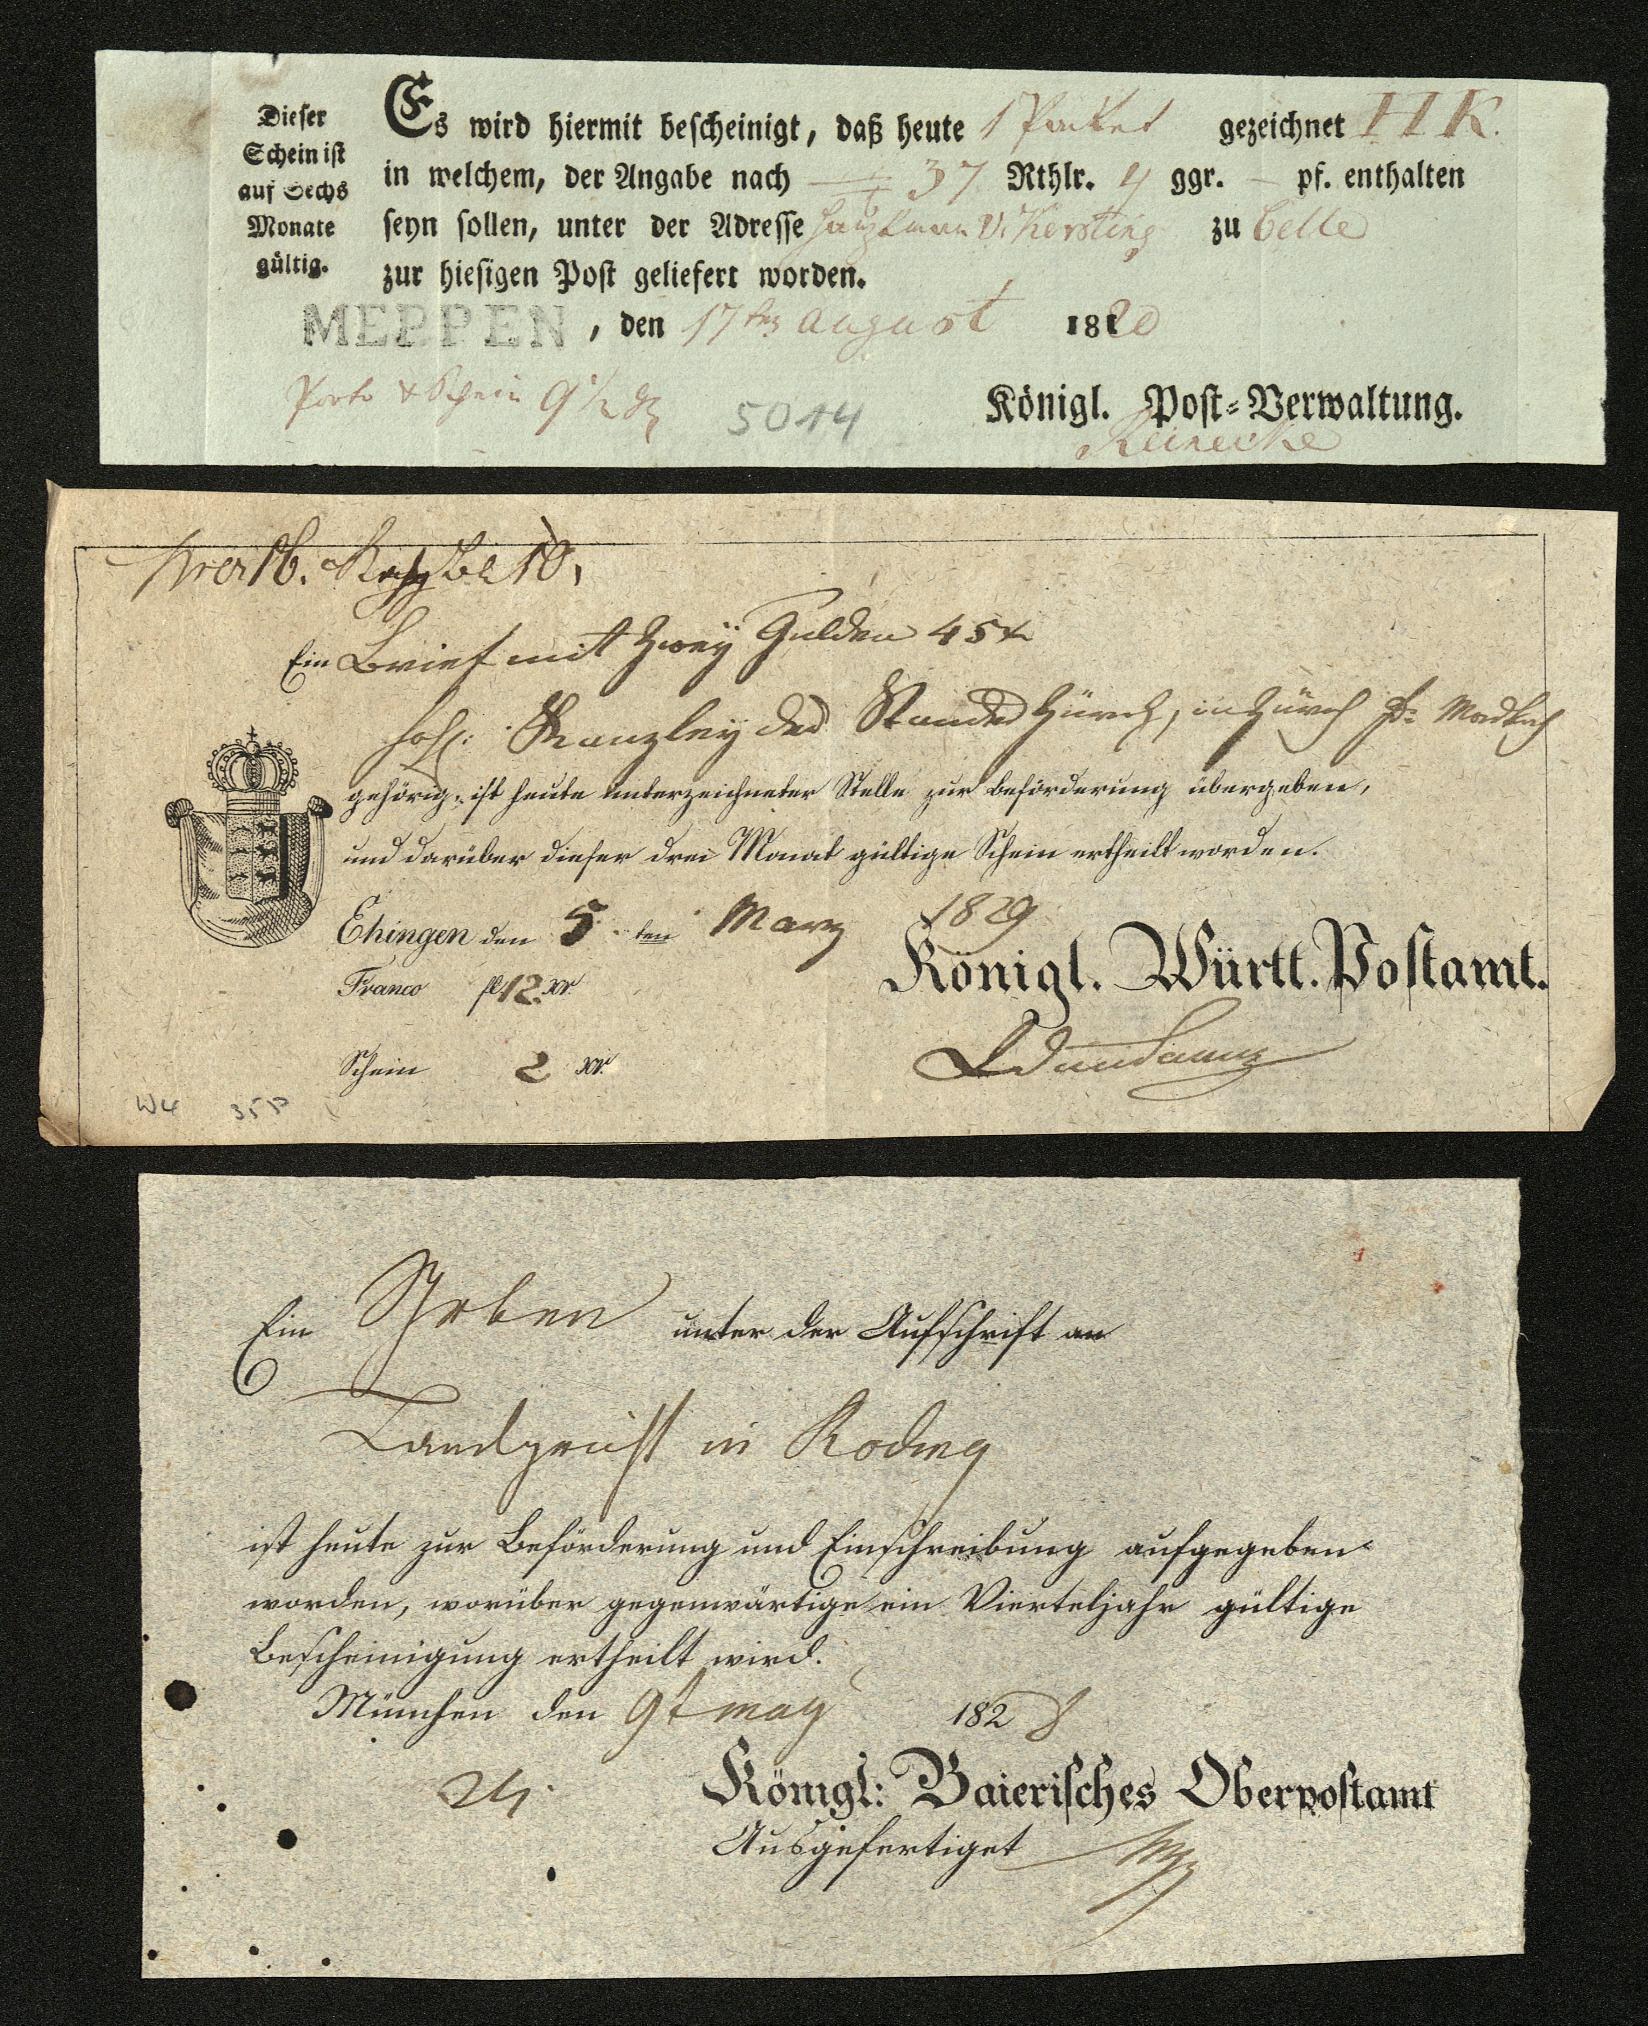 Dieser
Schein ist
auf Sechs
Monate
gültig.
Es wird hiermit bescheinigt, daß heute 1 Packet gezeichnet H K.
in welchem, der Angabe nach 37 Rthlr. 4 ggr. — pf. enthalten
seyn sollen, unter der Adresse Hauptmann v. Kersting zu Celle
zur hiesigen Post geliefert worden.
MEPPEN, den 17ten August 1820
Porto & Schein 9 1/2
5014
Königl. Post-Verwaltung.
Reinecke
Ein Brief mit Zwey Gulden 45 x
Kanzley des Standes Zürch, in Zürch
gehörig, ist heute unterzeichneter Stelle zur Beförderung übergeben,
und darüber dieser drei Monat gültige Schein ertheilt worden.
Ehingen den 5ten Marz 1829
Franco fl 12 xr.
Königl. Württ. Postamt.
Schein 2 xr.
W4 35
Ein Schrben unter der Aufschrift an
Landgericht in Roding
ist heute zur Beförderung und Einschreibung aufgegeben
worden, worüber gegenwärtige ein Vierteljahr gültige
Bescheinigung ertheilt wird.
München den 9t may 1828
Königl: Baierisches Oberpostamt
Ausgefertiget